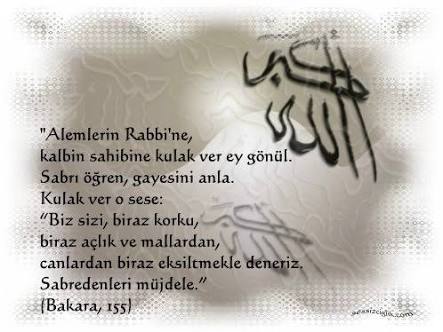 الله أكبر
"Alemlerin Rabbi'ne,
kalbin sahibine kulak ver ey gönül.
Sabrı öğren, gayesini anla.
Kulak ver o sese:
"Biz sizi, biraz korku,
biraz açlık ve mallardan,
canlardan biraz eksiltmekle deneriz.
Sabredenleri müjdele."
(Bakara, 155)